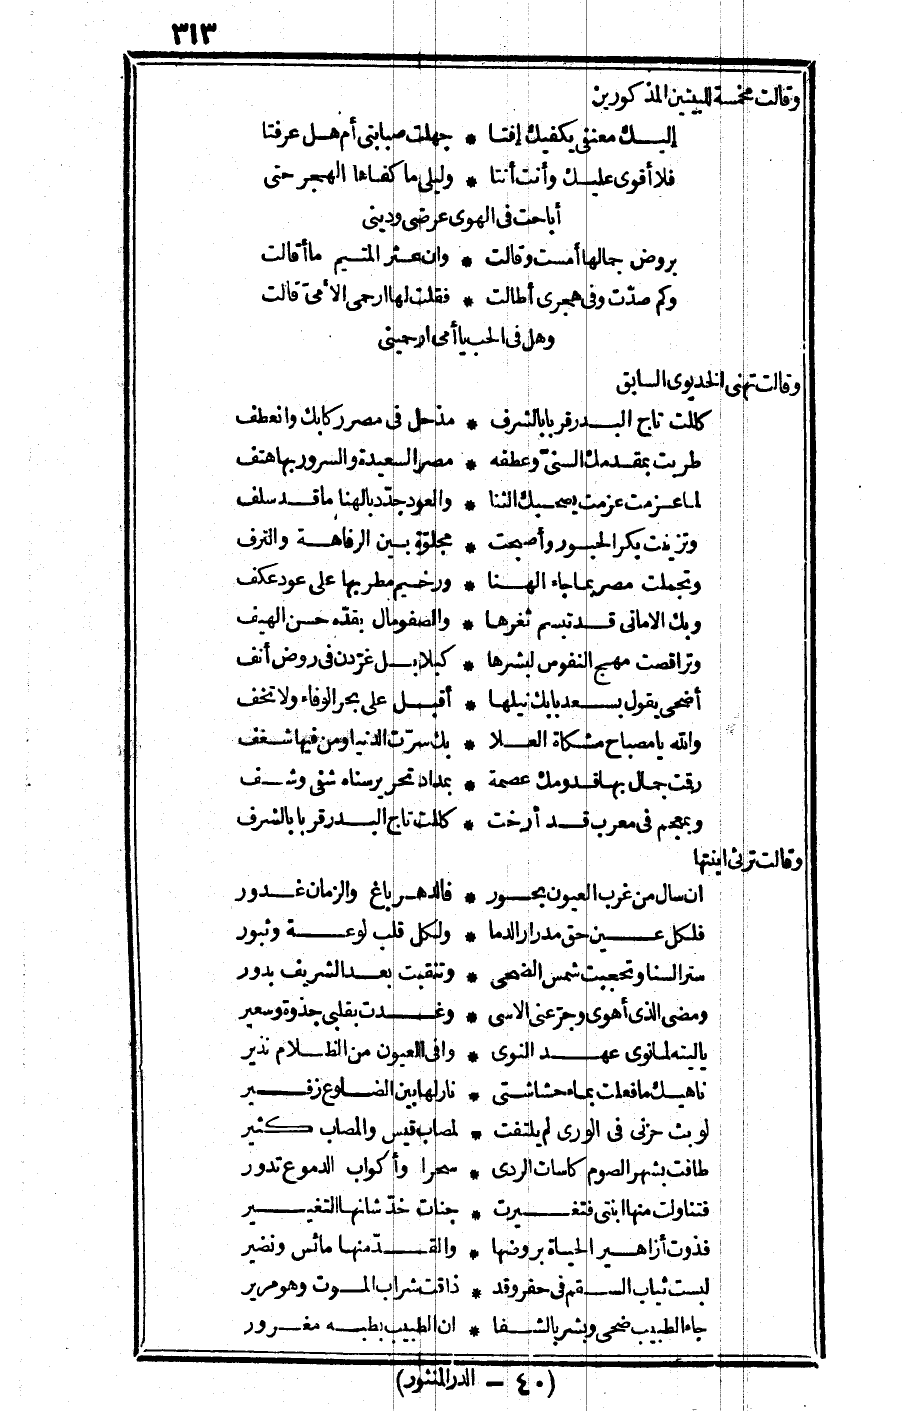 ٣١٣
وقالت مخمسة البيتين المذكورين
إليك معنفي يكفيك إفتا * جهلت صبابتي أم هل عرفتا
فلا أقوى عليك وأنت أنتا * وليلى ما كفاها الهجر حتى
أباحت في الهوى عرضي وديني
بروض جمالها أمست وقالت * وان عثر المتيم ما أقالت
وكم صدّت وفي هجري أطالت * فقلت لها ارحمي الأمي قالت
وهل في الحب يا أمي ارحميني
وقالت تهنئ الخديوى السابق
كللت تاج البدر قربا بالشرف * مذ حل في مصر ركابك وانعطف
طربت بمقدمك السنيّ وعطفه * مصر السعيدة والسرور بها هتف
لما عزمت عزمت يصحبك الثنا * والعود جدّد بالهنا ما قد سلف
وتزينت بكر الحبور وأصبحت * مجلوّة بين الرفاهة والترف
وتجملت مصر بما جاء الهنا * ورخيم مطربها على عود عكف
وبك الاماني قد تبسم ثغرها * والصفو مال بقدّه حسن الهيف
وتراقصت مهج النفوس لبشرها * كبلابل غرّدن في روض أنف
أضحى يقول بسعد بابك نيلها * أقبل على بحر الوفاء ولا تخف
والله يا مصباح مشكاة العلا * بك سرّت الدنيا ومن فيها شغف
رقت جمال بها قدومك عصمة * بمداد تحرير سناه شفى وشف
وبمعجم في معرب قد أرخت * كللت تاج البدر قربا بالشرف
وقالت ترثى ابنتها
ان سال من غرب العيون بحور * فالدهر باغ والزمان غدور
فلكل عين حق مدرار الدما * ولكل قلب لوعة وثبور
ستر السنا وتحجبت شمس الضحى * وتنقبت بعد الشريف بدور
ومضى الذى أهوى وجرّعنى الاسى * وغدت بقلبى جذوة وسعير
ياليته لما نوى عهد النوى * وافى العيون من الظلام نذير
ناهيك ما فعلت بماء حشاشتى * نار لها بين الضلوع زفير
لو بث حزنى فى الورى لم يلتفت * لمصاب قيس والمصاب كثير
طافت بشهر الصوم كاسات الردى * سحرا وأكواب الدموع تدور
فتناولت منها ابنتى فتغيرت * جنات خدّ شانها التغيير
فذوت أزاهير الحياة بروضها * والقدّ منها مائس ونضير
لبست ثياب السقم فى حفر وقد * ذاقت شراب الموت وهو مرير
جاء الطبيب ضحى وبشر بالشفا * ان الطبيب بطبه مغرور
(٤٠ - الدر المنثور)